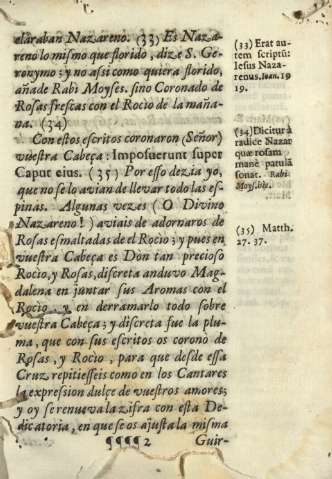 claraban Nazareno. (33) Es Naza-
reno lo mismo que florido, dize S. Ge-
ronymo; y no assi como quiera florido,
añade Rabi Moyses. sino Coronado de
Rosas frescas con el Rocio de la maña-
na. (34)
Con estos escritos coronaron (Señor)
vuestra Cabeça: Imposuerunt super
Caput eius. (35) Por esso dezia yo,
que no se lo avian de llevar todo las es-
pinas. Algunas vezes (O Divino
Nazareno!) aviais de adornaros de
Rosas esmaltadas de el Rocio; y pues en
vuestra Cabeça es Don tan precioso
Rocio, y Rosas, discreta anduvo Mag-
dalena en juntar sus Aromas con el
Rocio, y en derramarlo todo sobre
vuestra Cabeça; y discreta fue la plu-
ma, que con sus escritos os coronò de
Rosas, y Rocio, para que desde essa
Cruz repitiesseis como en los Cantares
la expression dulçe de vuestros amores;
y oy se renueva la zifra con esta De-
dicatoria, en que se os ajusta la misma
¶¶¶¶ 2 Guir-
(33) Erat au-
tem scriptũ:
Iesus Naza-
renus. Ioan. 19
19.
(34) Dicitur à
radice Nazar
quæ rosam
manè patulã
sonat. Rabi-
Moys. bis.
(35) Matth.
27. 37.